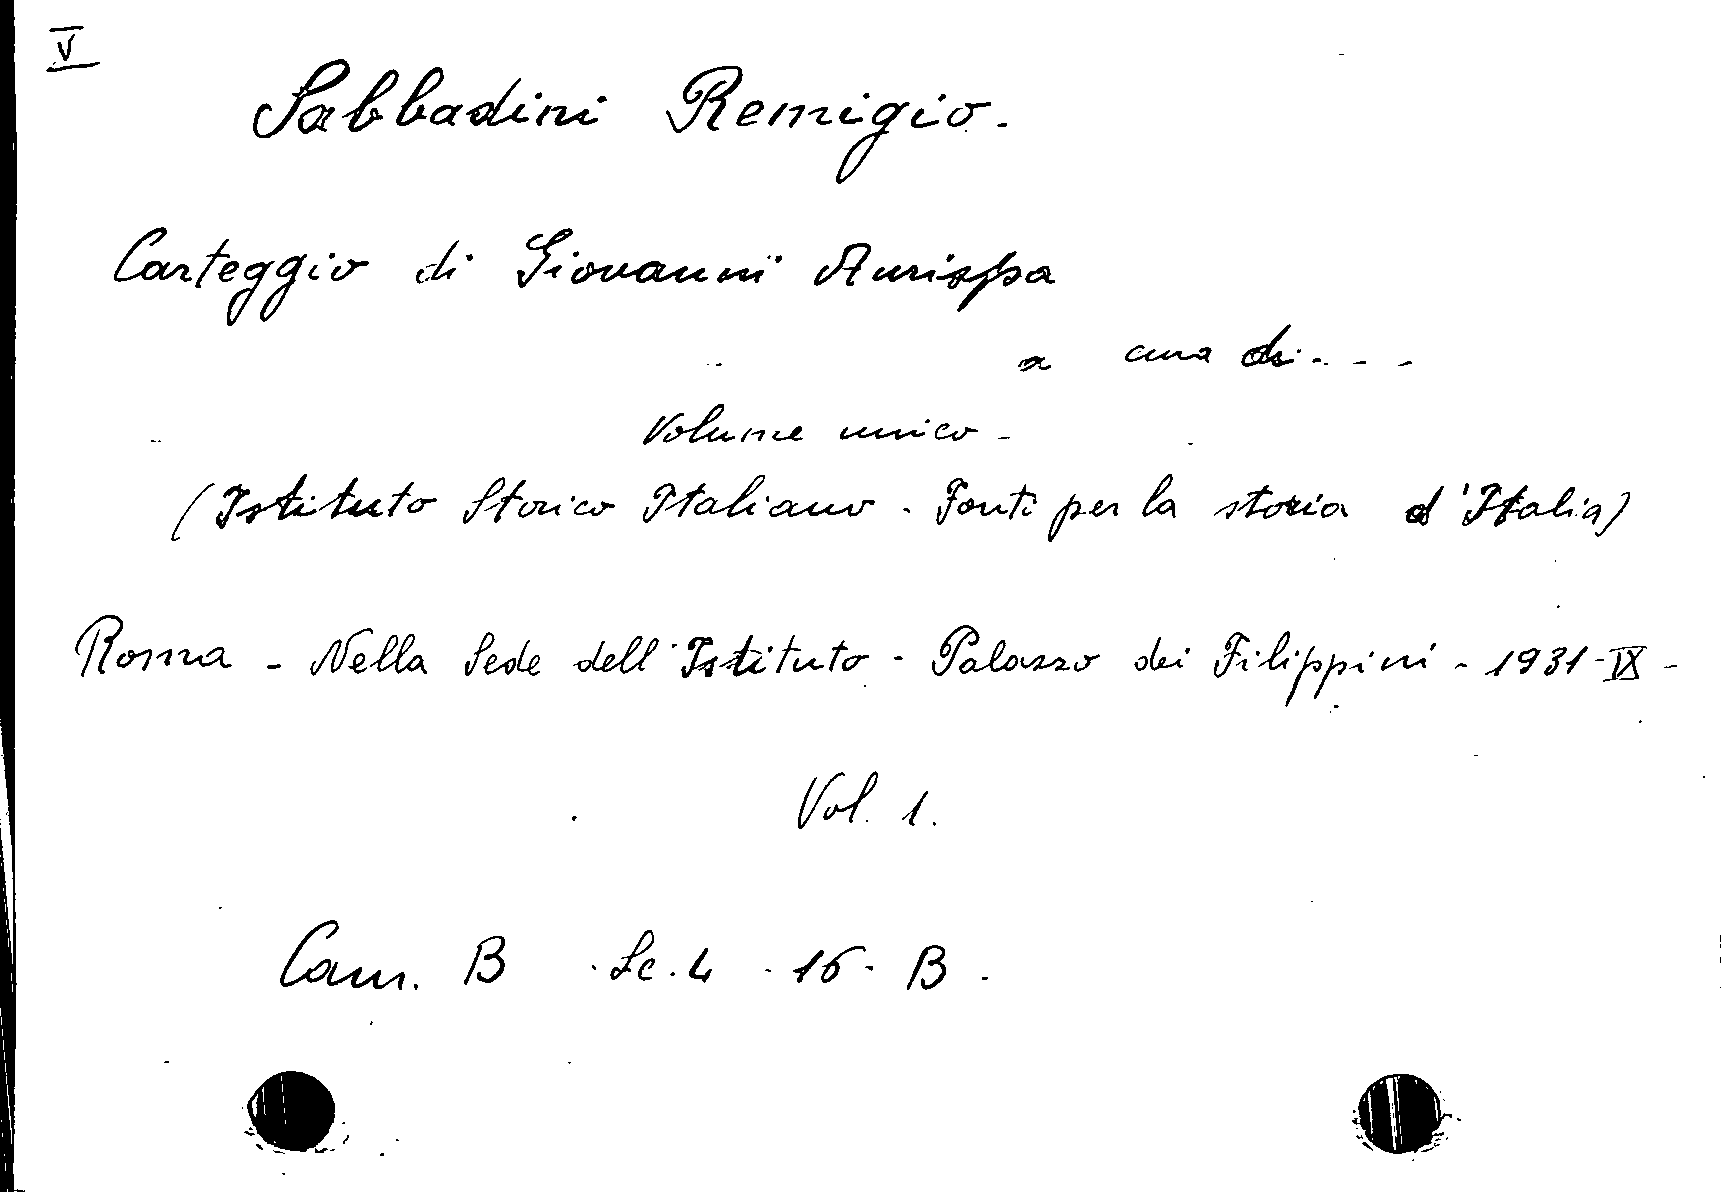 V
Sabbadini Remigio.
Carteggio di Giovanni Aurispa
a cura di....
Volume unico -
(Istituto Storico Italiano - Fonti per la storia d'Italia)
Roma - Nella Sede dell'Istituto - Palazzo dei Filippini - 1931 - IX -
Vol. 1.
Cam. B . Sc. 4 - 16 - B -